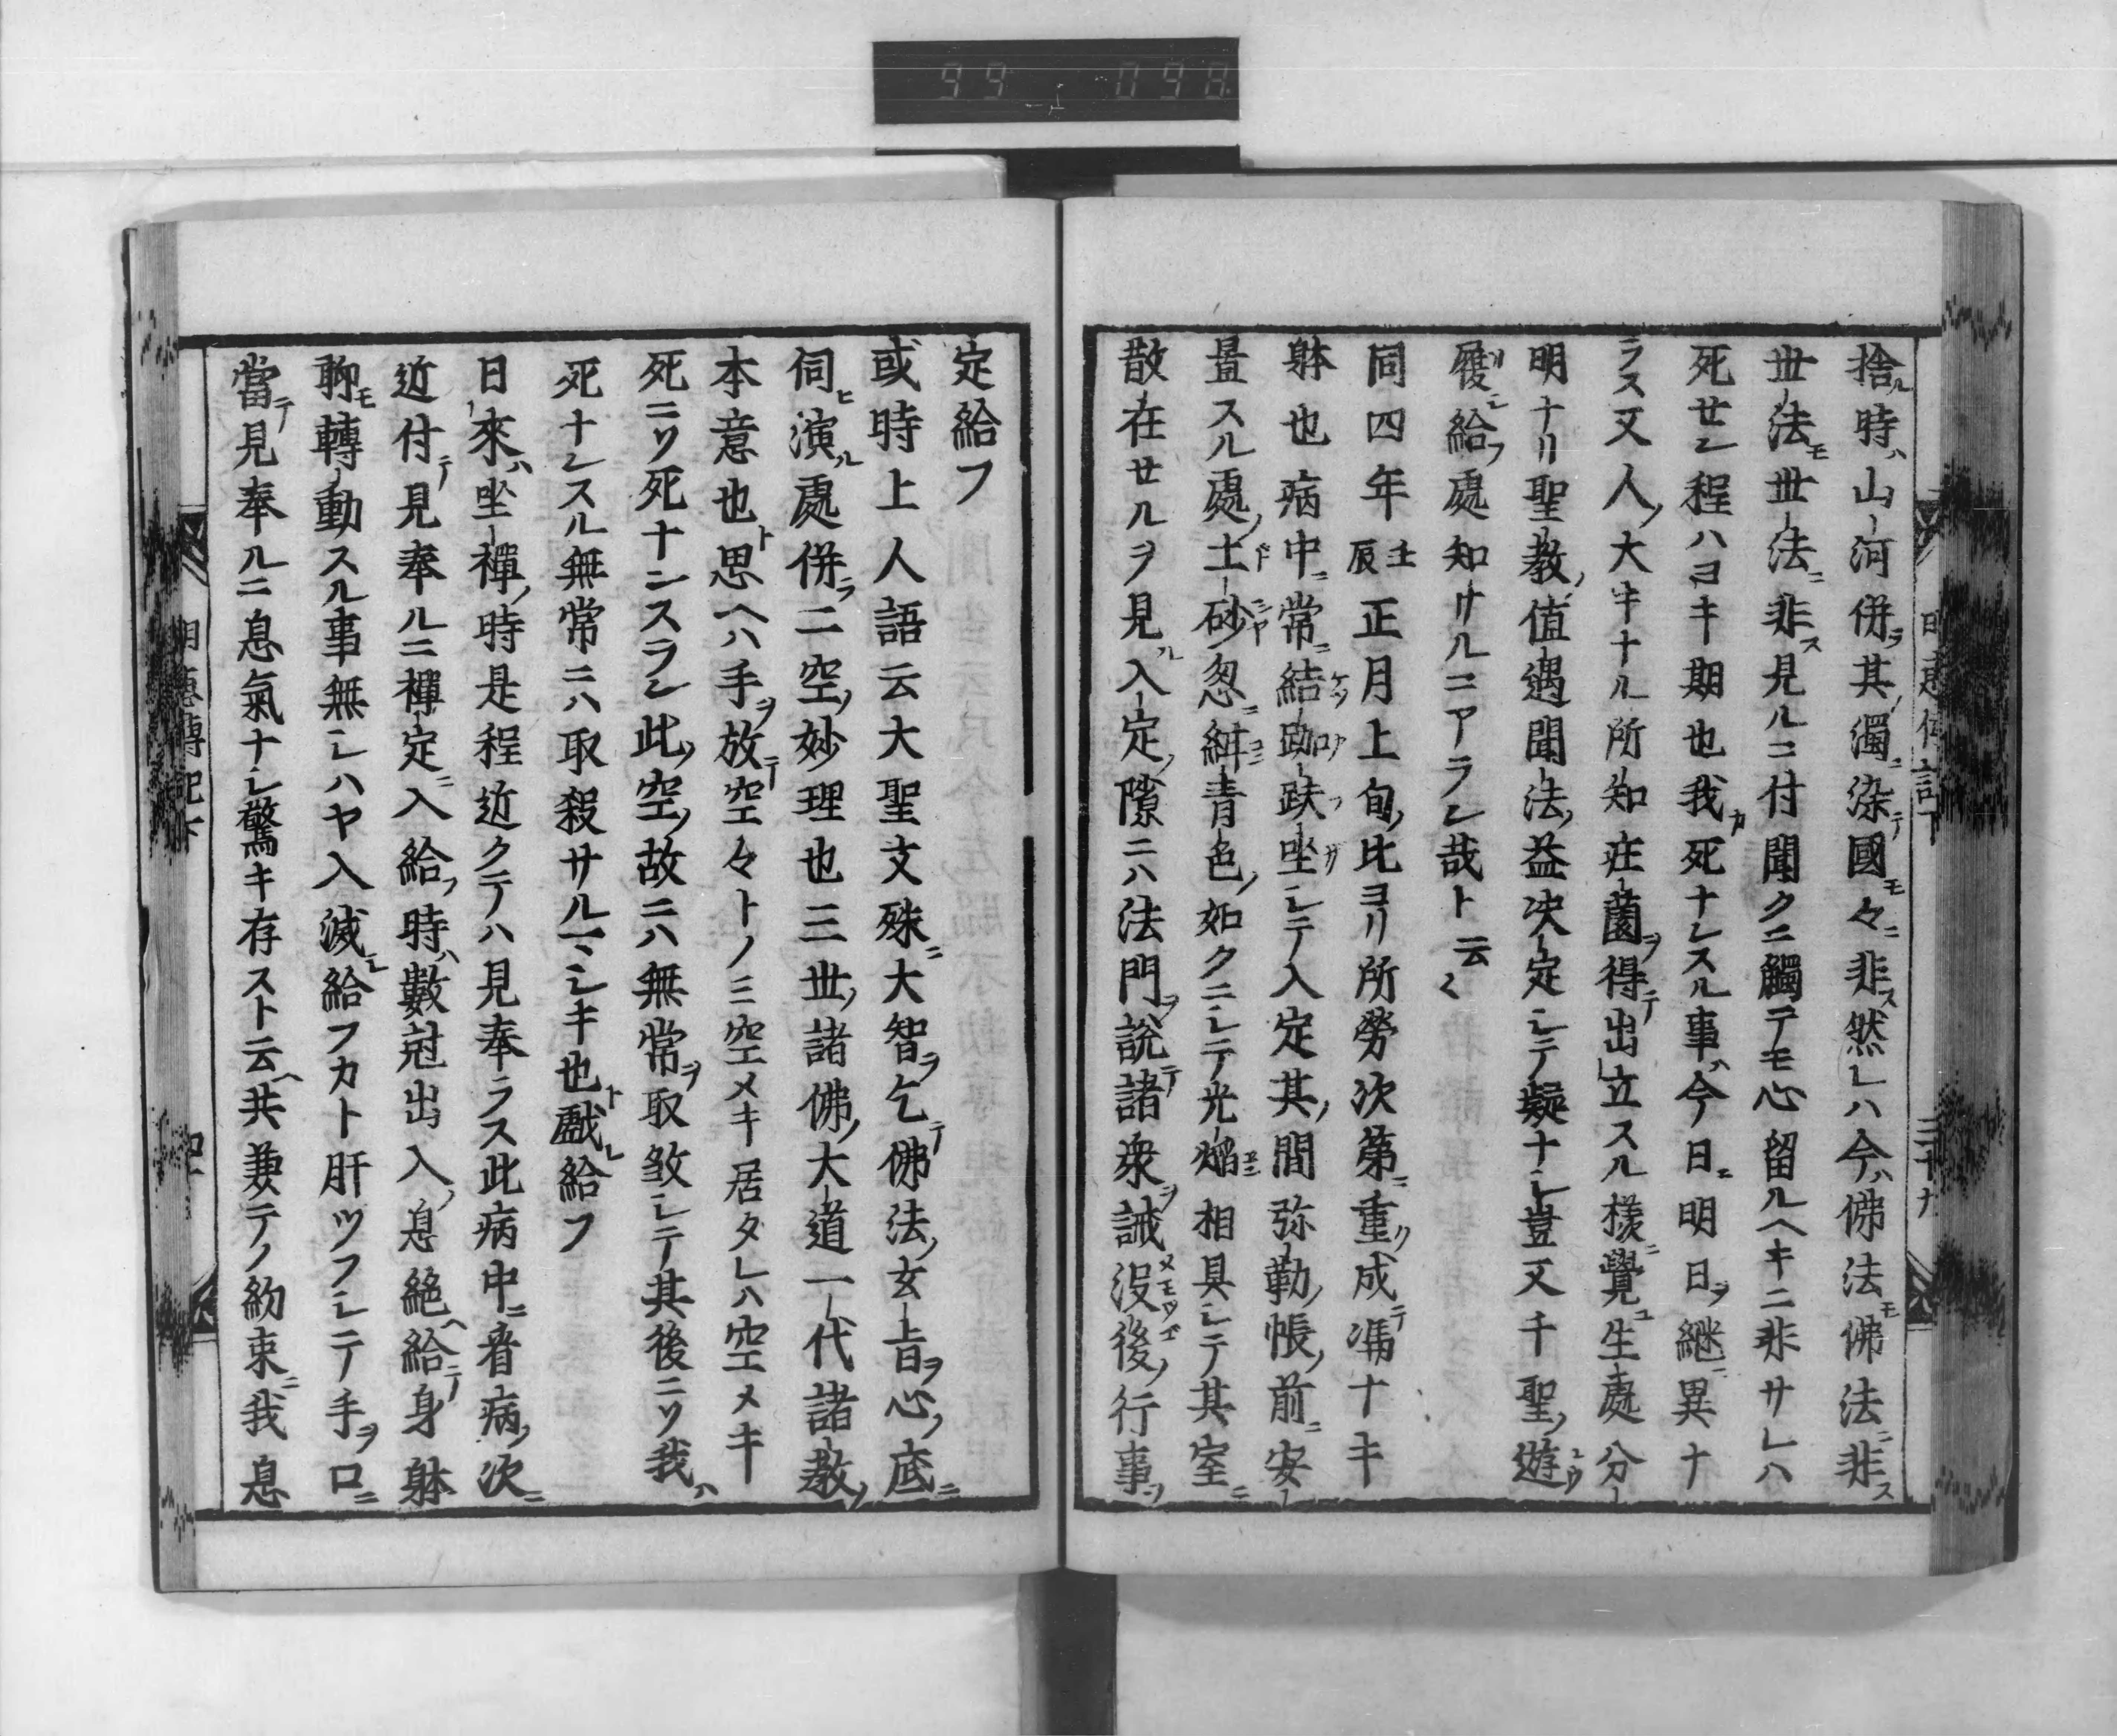 捨ル時ハ山河併ヲ其ノ濁ニ染テ國モ々ニ非ス然レハ今ハ佛法モ佛法ニ非ス
世法モ世法ニ非ス見ルニ付聞クニ觸テモ心留ルヘキニ非サレハ
死セン程ハヨキ期也我カ死ナンスル事ハ今日ニ明日ヲ継ニ異ナ
ラス又人ノ大キナル所知庄薗ヲ得テ出立スル様ニ覺ユ生處分
明ナリ聖教ノ値遇聞法ノ益决定シテ疑ナシ豈又千聖ノ遊
履シ給フ處知サルニアラン哉ト云々
同四年壬辰正月上旬ノ比ヨリ所勞次第ニ重ク成テ馮ナキ
躰也病中ニ常ニ結跏趺坐シテ入定其ノ間弥勒ノ帳ノ前ニ安
置スル處ノ土砂忽ニ紺青色ノ如クニシテ光焔相具シテ其室ニ
散在セルヲ見ル入定ノ隙ニハ法門ヲ說テ諸衆ヲ誡メ沒後ノ行事ヲ
定給フ
或時上人語云大聖文殊ニ大智ヲ乞テ佛法ノ玄旨ヲ心ノ底ニ
伺ヒ演ル處併ラ二空ノ妙理也三世ノ諸佛ノ大道一代諸教ノ
本意也ト思ヘハ手ヲ放テ空々トノミ空メキ居タレハ空メキ
死ニソ死ナンスラン此ノ空ノ故ニハ無常ヲ取敛シテ其後ニソ我ハ
死ナンスル無常ニハ取殺サルマシキ也ト戲レ給フ
日來ハ坐禪ノ時是程近クテハ見奉ラス此病中ニ看病ノ次ニ
近付テ見奉ルニ禪定ニ入給フ時ハ數尅出入ノ息絶ヘ給テ身躰
聊モ轉動スル事無シハヤ入滅シ給フカト肝ツフシテ手ヲ口ニ
當テ見奉ルニ息氣ナシ驚キ存スト云ヘ共兼テノ約束ニ我息
明惠傳記下
三十九
明惠傳記下
四十
99 098